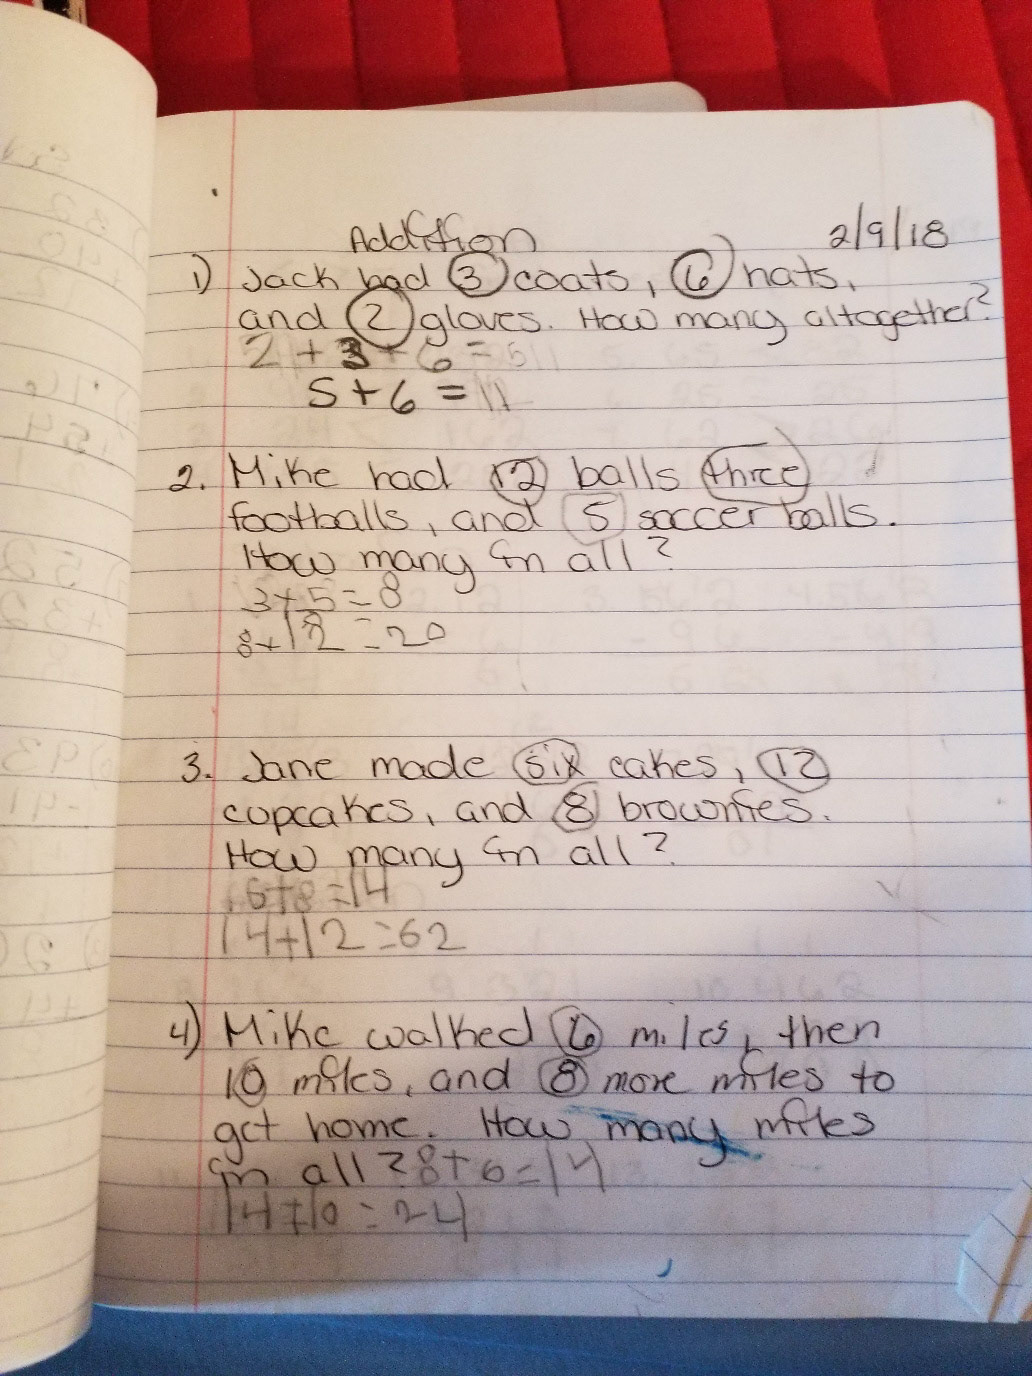 Addition 2/9/18
1) Jack had 3 coats, 6 hats,
and 2 gloves. How many altogether?
2+3+6=
5+6=11
2. Mike had 12 balls three
footballs, and 5 soccer balls.
How many in all?
3+5=8
8+12=20
3. Jane made six cakes, 12
cupcakes, and 8 brownies.
How many in all?
6+8=14
14+12=62
4) Mike walked 6 miles, then
10 miles, and 8 more miles to
get home. How many miles
in all? 8+6=14
14+10=24